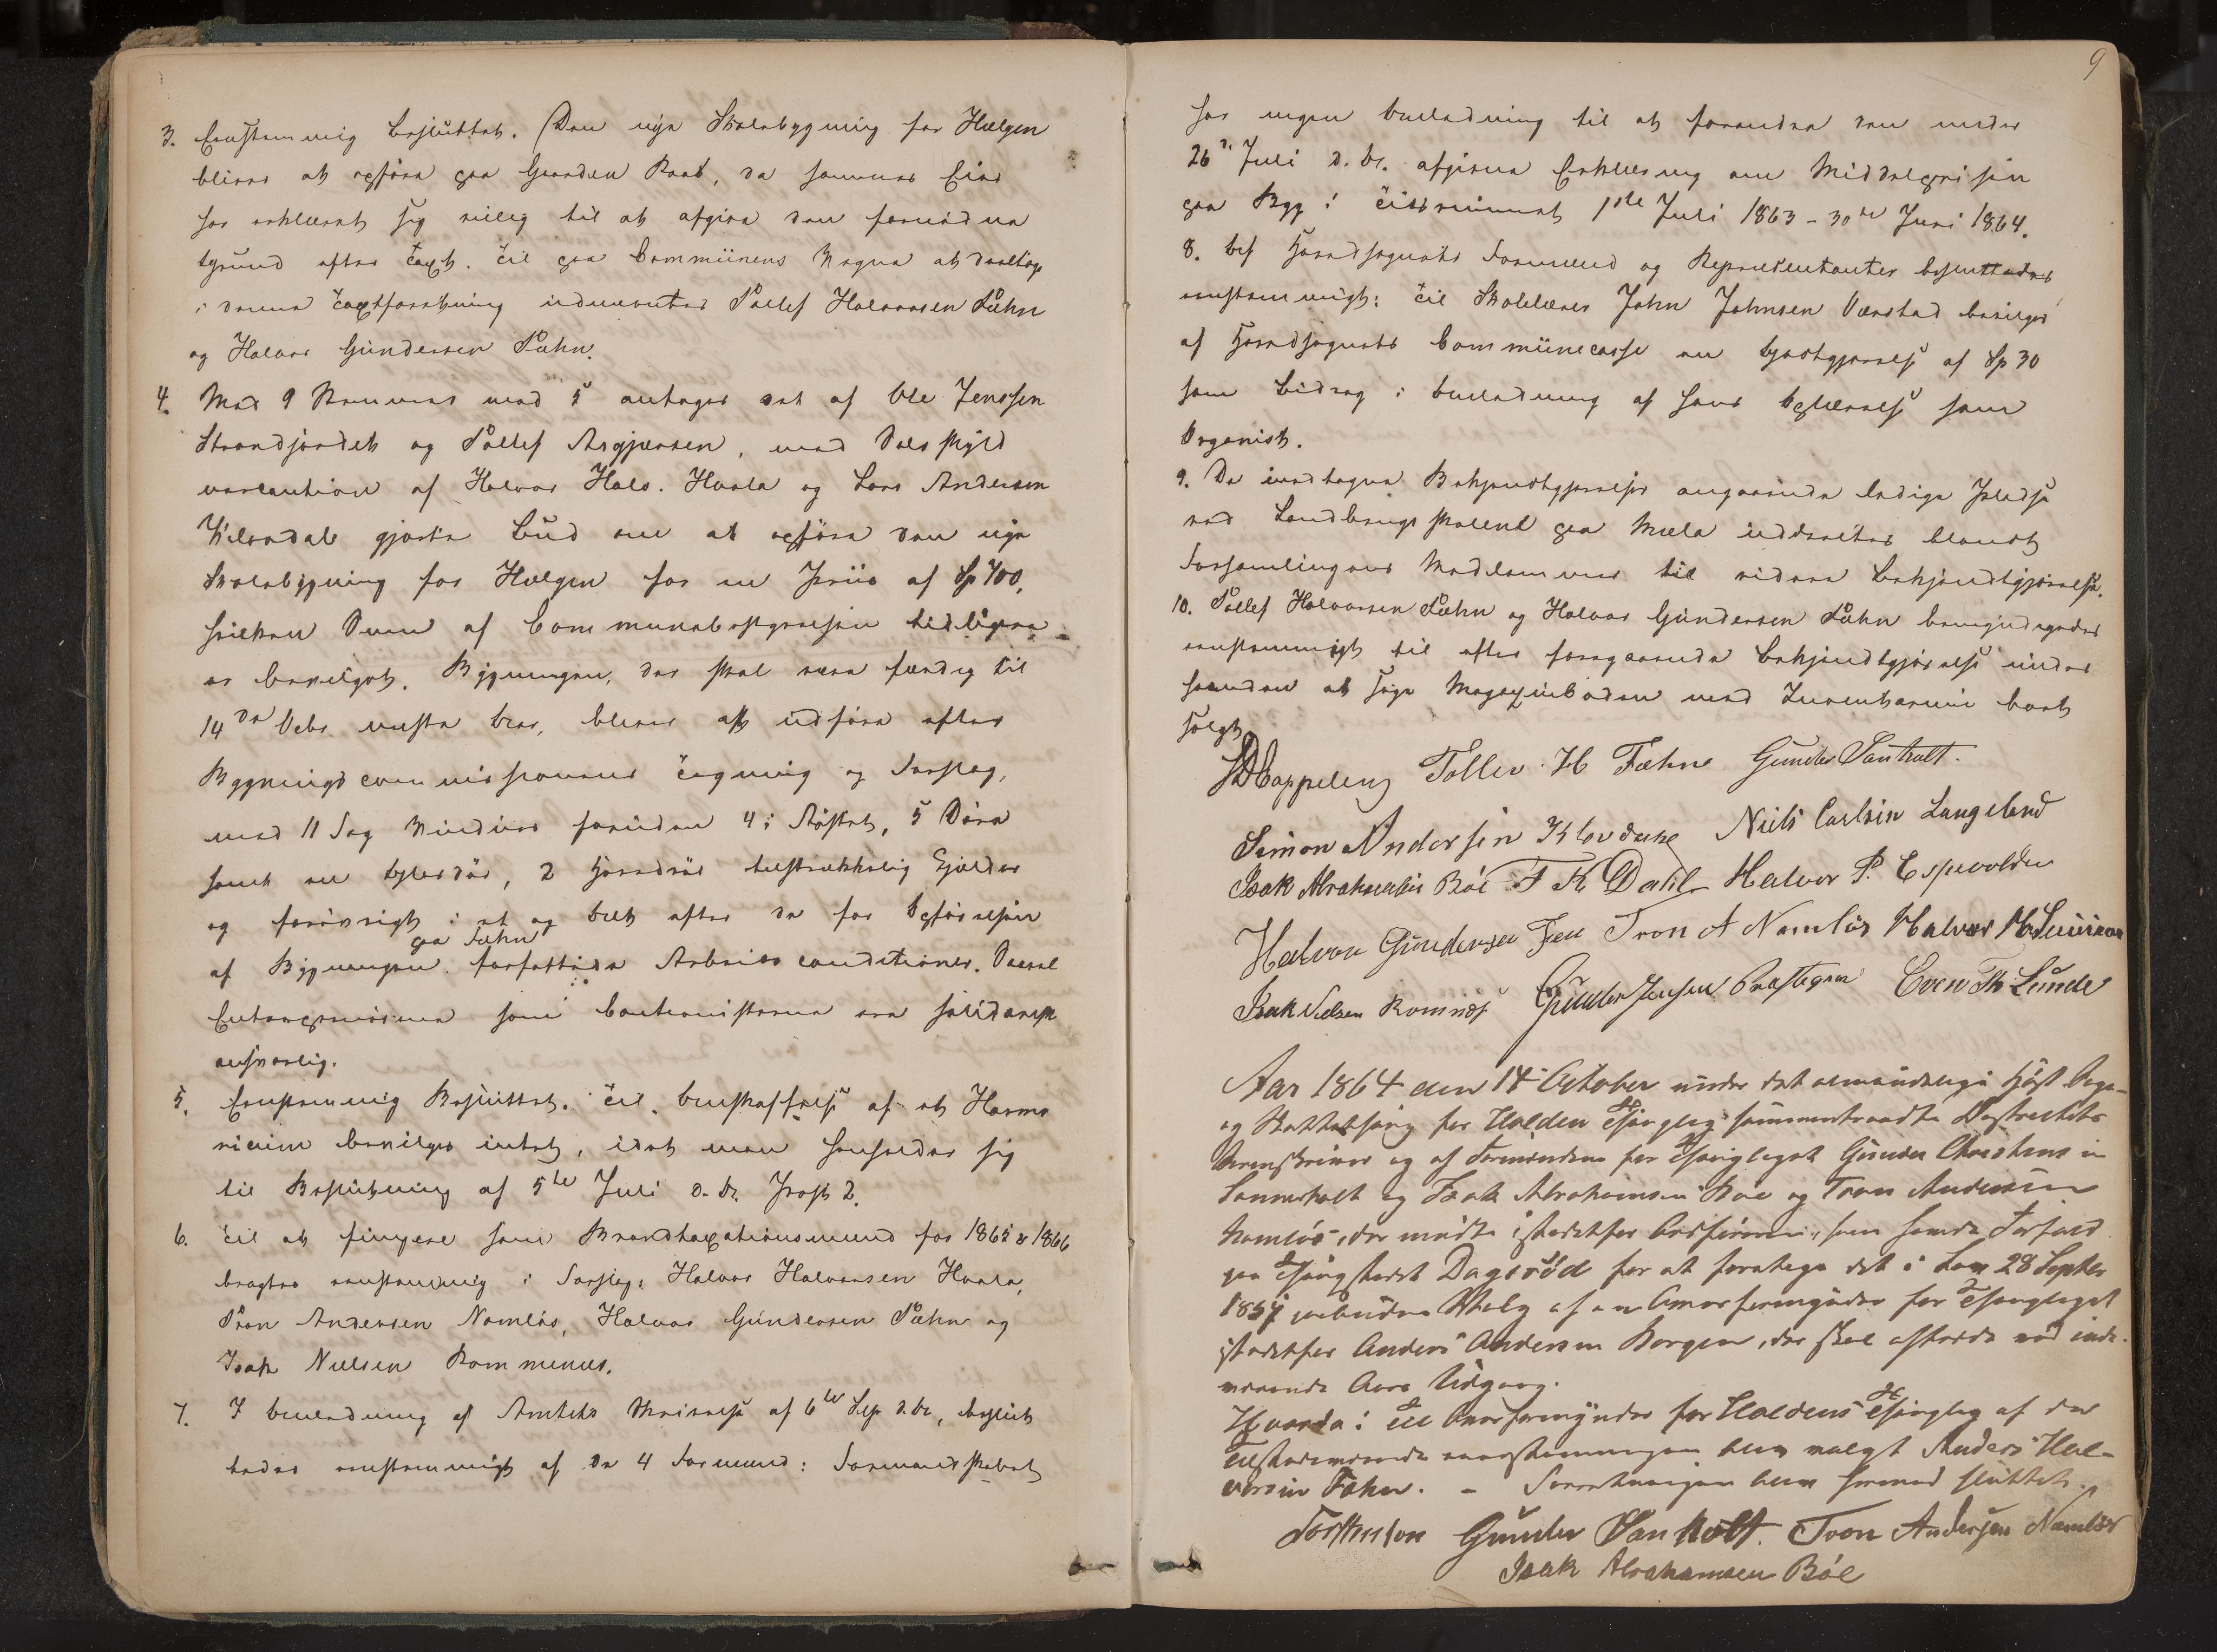 3. Eenstemmig besluttet. Den nye Skolebygning for Helgen
bliver at opføre paa Gaarden Raab, da sammes Eier
har erklæret sig villig til at afgive den fornødne
Grund efter Taxt. Til paa Communens Vegne at deeltage
i denne Taxtforretning udnævntes Tollef Halvorsen Fæhn
og Halvor Gundersen Fæhn.
4. Med 9 Stemmer mod 5 antoges det af Ole Jenssen
Strandjordet og Tollef Asgjersen, med Selvskyld
nercaution af Halvor Halv. Hvala og Lars Andersen
gjorte Bud om at opføre den nye
Skolebygning for Helgen for en Priis af Sp 400,
hvilken Sum af Communebestyrelsen tidligere
er bevilget. Bygningen, der skal være færdig til
14de Octbr næste Aar, bliver at udføre efter
Bygningscommissionens Tegning og Forslag,
med 11 Fag Vinduer foruden 4 i Røstet, 5 Døre
samt en Gløsdør, 2 tilstrækkelig Gjelder
og forøvrigt i et og Alt efter de for Opførelsen
paa Fæhn
af Bygningen forfattede Arbeidsconditioner. Saavel
Entrepreneurerne som Cautionisterne ere solidarisk
ansvarlig.
5. Eenstemmig Besluttet. Til Anskaffelse af et Harmo
nium bevilges intet, idet man henholder sig
til Beslutning af 5te Juli d. A. Post 2.
6. Til at fungere som Brandtaxationsmænd for 1865 & 1866
bragtes eenstemmig i Forslag: Halvor Halvorsen Hvala,
Tron Andersen Namløs, Halvor Gundersen Fæhn og
Isak Nielsen Romnæs.
7. I Anledning af Amtets Skrivelse af 6te Sep d. A., beslut
tedes eenstemmigt af de 4 Formænd: Formandskabet
9
har ingen Anledning til at forandre den under
26de Juli d. A. afgivne Erklæring om Middelprisen
paa Byg i Tidsrummet 1ste Juli 1863 - 30te Juni 1864.
8. Af Herredsognets Formænd og Repræsentanter besluttedes
eenstemmigt: Til Skolelærer John Johnsen Værstad bevilges
af Herredsognets Communecasse en Godtgjørelse af Sp 30
som Bidrag i Anledning af hans Oplærelse som
Organist.
9. De modtagne Bekjendtgjørelser angaaende ledige Pladse
ved Landbrugsskolen paa Mæla uddeeltes blandt
Forsamlingens Medlemmer til videre Bekjendtgjørelse.
10. Tollef Halvorsen Fæhn og Halvor Gundersen Fæhn bemyndigedes
eenstemmigt til efter foregaaende Bekjendtgjørelse under
haanden at søge Magazinboden med Inventarium bort
solgt.
Cappelen Tollev H Fæhn Gunder Sanholt.
Simon Andersen Klovdahl Niels Carlsen Langeland
Isak Abrahamsen Bøe F K Dahl Halvor P. Espevolden
Halvor Gundersen Fen Tron A Namløs Halvor H
Isak Nielsen Romnæs Gunder Jensen Præstegrn Even Th Lunde
Aar 1864 den 14 October under det almindelige Høst Sage-
og Skatteting for Holden Thinglag sammentraadte Districtets
Sorenskriver og af Formændene for Thinglaget Gunder Christensen
Sannerholt og Isak Abrahamsen Bøe og Tron Andersen
Namløs, der mødte istedetfor Ordføreren, som havde Forfald
paa Thingstedet Dagsrød for at foretage det i Lov 28 Septbr
1857 paabudne Valg af en Overformynder for Thinglaget
istedetfor Anders Andersen Borgen, der skal aftræde ved inde-
værende Aars Udgang.
Hvorda: Til Overformynder for Holdens Thinglag af de
Tilstedeværende eenstemmigen blev valgt Anders Hal-
vorsen Fæhn. - Forretningen blev hermed sluttet.
Gunder Sanholt. Tron Andersen Namløs
Isak Abrahamsen Bøe